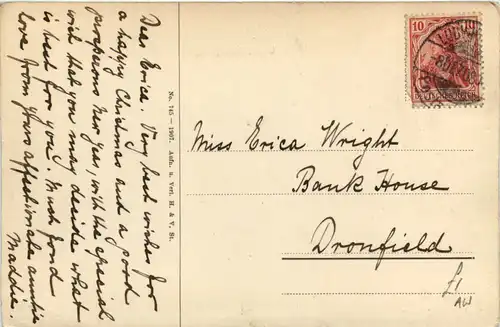 Dear Erica. Very best wishes for
a happy Christmas and a good
prosperous New Year, with the special
wish that you may decide what
is best for you. Much fond
love from yours affectionate auntie
Maddie.
No. 745 — 1907. Aufn. u. Verl. H. & V. St.
10
10
Miss Erica Wright
Bank House
Dronfield
£1
AW